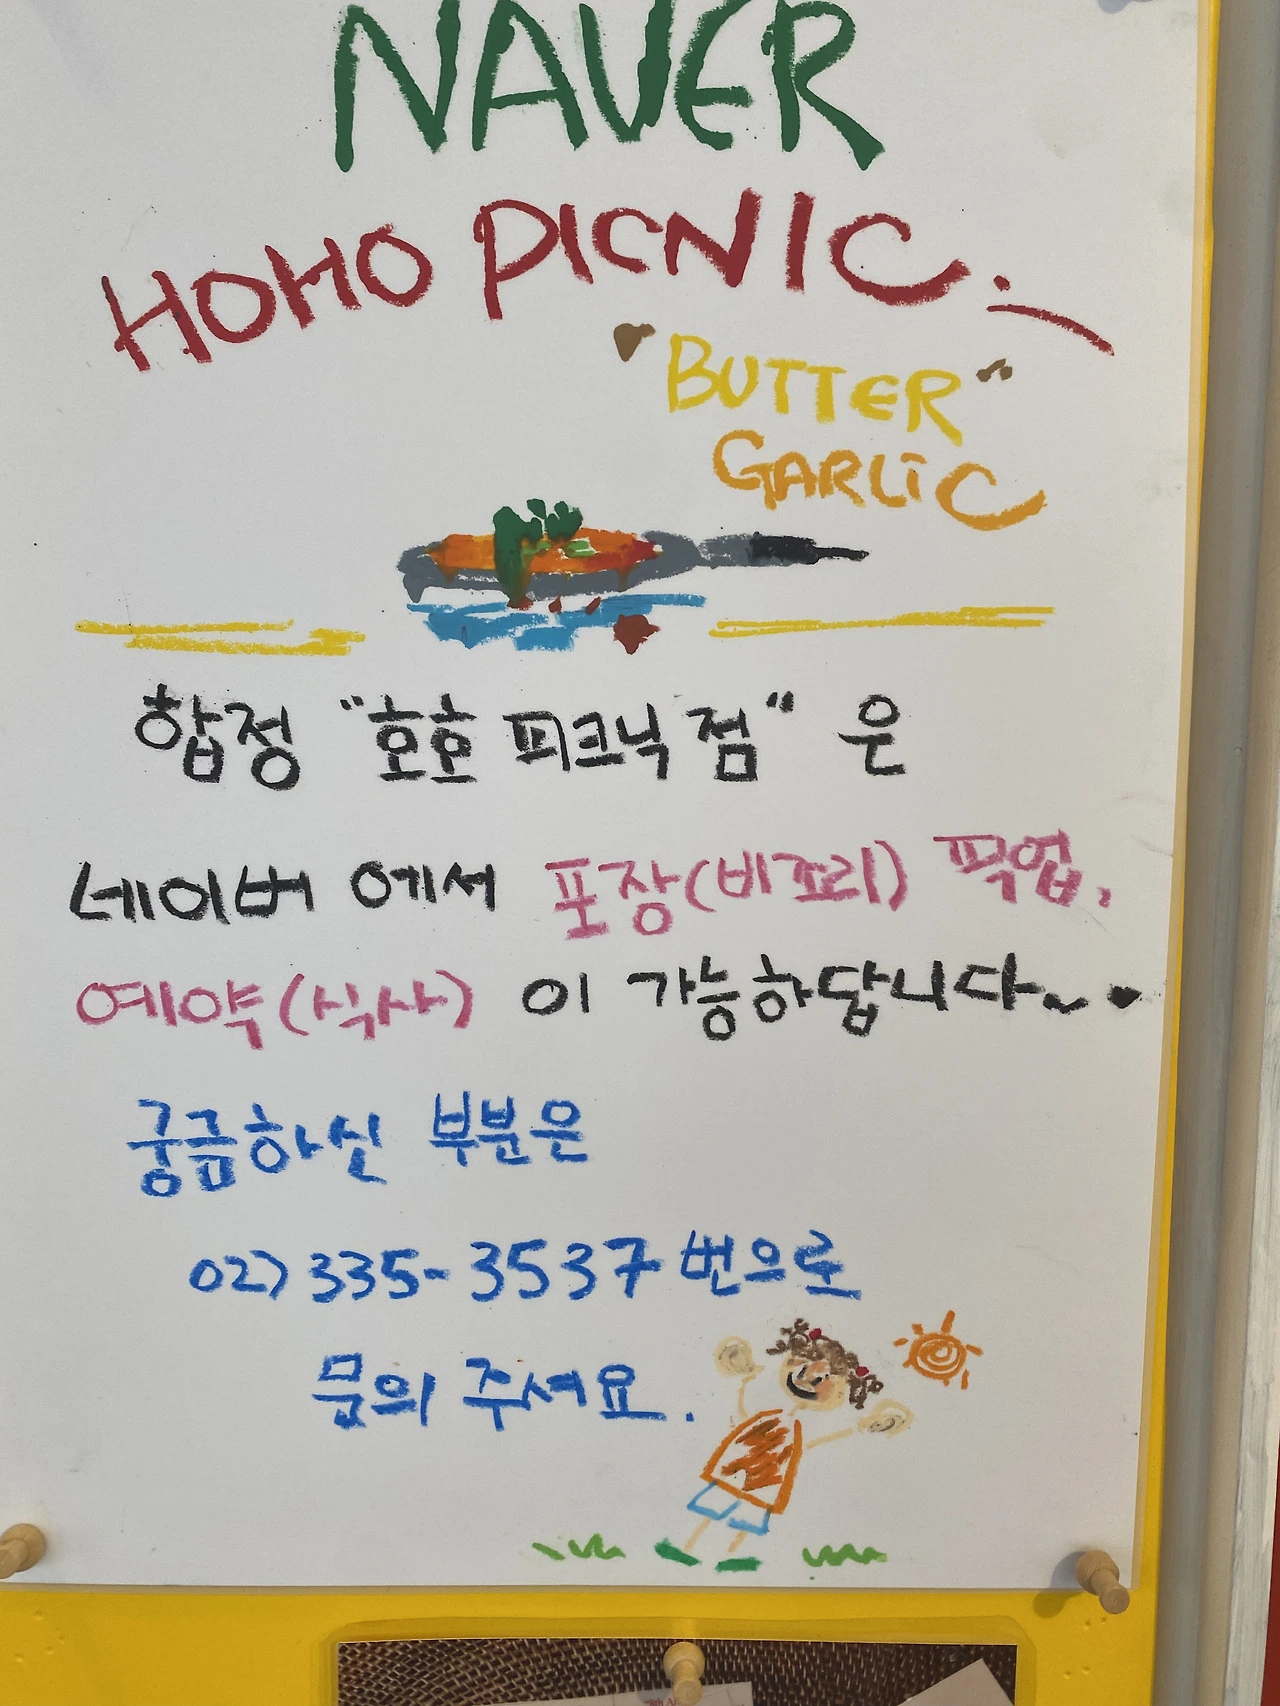 NAVER
HOHO PICNIC.
"BUTTER"
GARLIC
합정 "호호 피크닉 점" 은
네이버 에서 포장(비조리) 픽업,
예약(식사) 이 가능하답니다~♥
궁금하신 부분은
02) 335-3537 번으로
문의 주셔요.